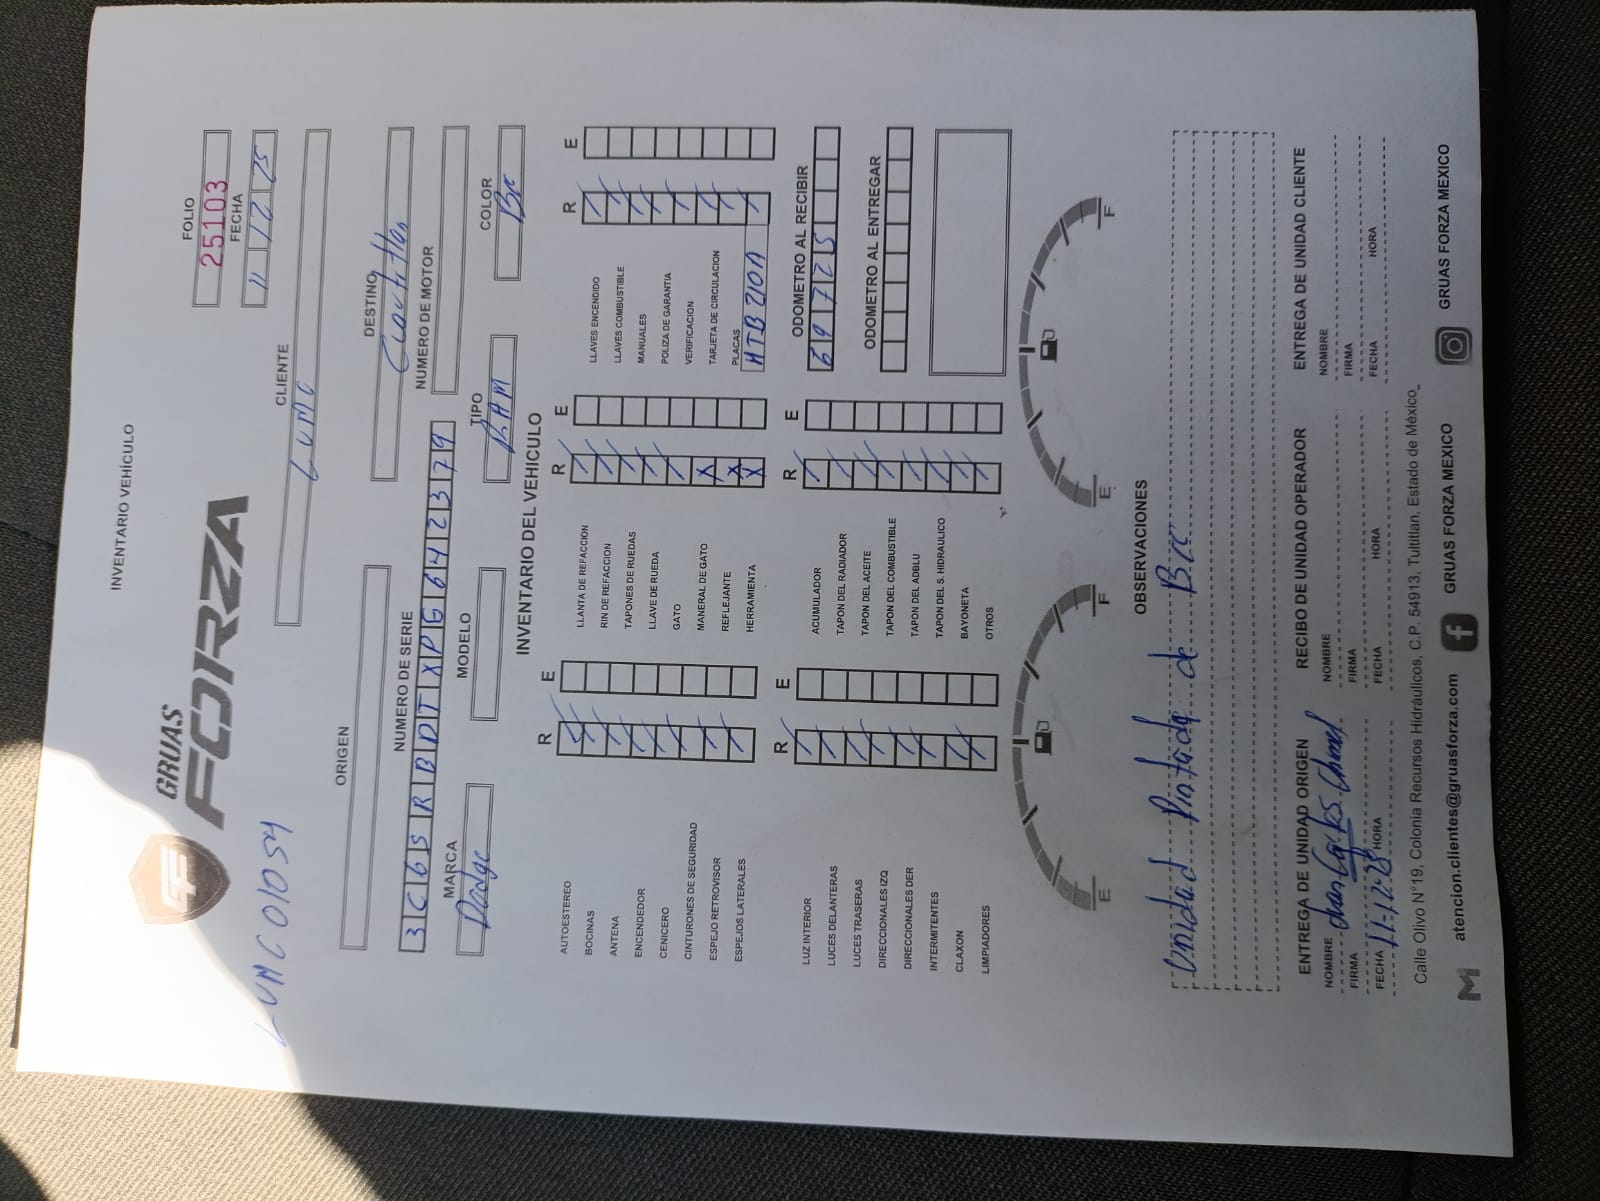 INVENTARIO VEHÍCULO
GRUAS
FORZA
LUMC 01054
FOLIO
25103
FECHA
11 12 25
CLIENTE
LUMC
ORIGEN
DESTINO
NUMERO DE SERIE
3C6SRBDTXPG642379
NUMERO DE MOTOR
MARCA
Dodge
MODELO
TIPO
RAM
COLOR
INVENTARIO DEL VEHICULO
R E R E R E
AUTOESTEREO
BOCINAS
ANTENA
ENCENDEDOR
CENICERO
CINTURONES DE SEGURIDAD
ESPEJO RETROVISOR
ESPEJOS LATERALES
LLANTA DE REFACCION
RIN DE REFACCION
TAPONES DE RUEDAS
LLAVE DE RUEDA
GATO
MANERAL DE GATO X
REFLEJANTE X
HERRAMIENTA X
LLAVES ENCENDIDO
LLAVES COMBUSTIBLE
MANUALES
POLIZA DE GARANTIA
VERIFICACION
TARJETA DE CIRCULACION
PLACAS
R E R E
LUZ INTERIOR
LUCES DELANTERAS
LUCES TRASERAS
DIRECCIONALES IZQ
DIRECCIONALES DER
INTERMITENTES
CLAXON
LIMPIADORES
ACUMULADOR
TAPON DEL RADIADOR
TAPON DEL ACEITE
TAPON DEL COMBUSTIBLE
TAPON DEL ADBLU
TAPON DEL S. HIDRAULICO
BAYONETA
OTROS
ODOMETRO AL RECIBIR
69725
ODOMETRO AL ENTREGAR
E F E F
OBSERVACIONES
Unidad Pintada de
ENTREGA DE UNIDAD ORIGEN
NOMBRE
FIRMA
FECHA 11-12-25 HORA
RECIBO DE UNIDAD OPERADOR
NOMBRE
FIRMA
FECHA HORA
ENTREGA DE UNIDAD CLIENTE
NOMBRE
FIRMA
FECHA HORA
Calle Olivo N°19, Colonia Recursos Hidráulicos, C.P. 54913, Tultitlan, Estado de México
atencion.clientes@gruasforza.com GRUAS FORZA MEXICO GRUAS FORZA MEXICO